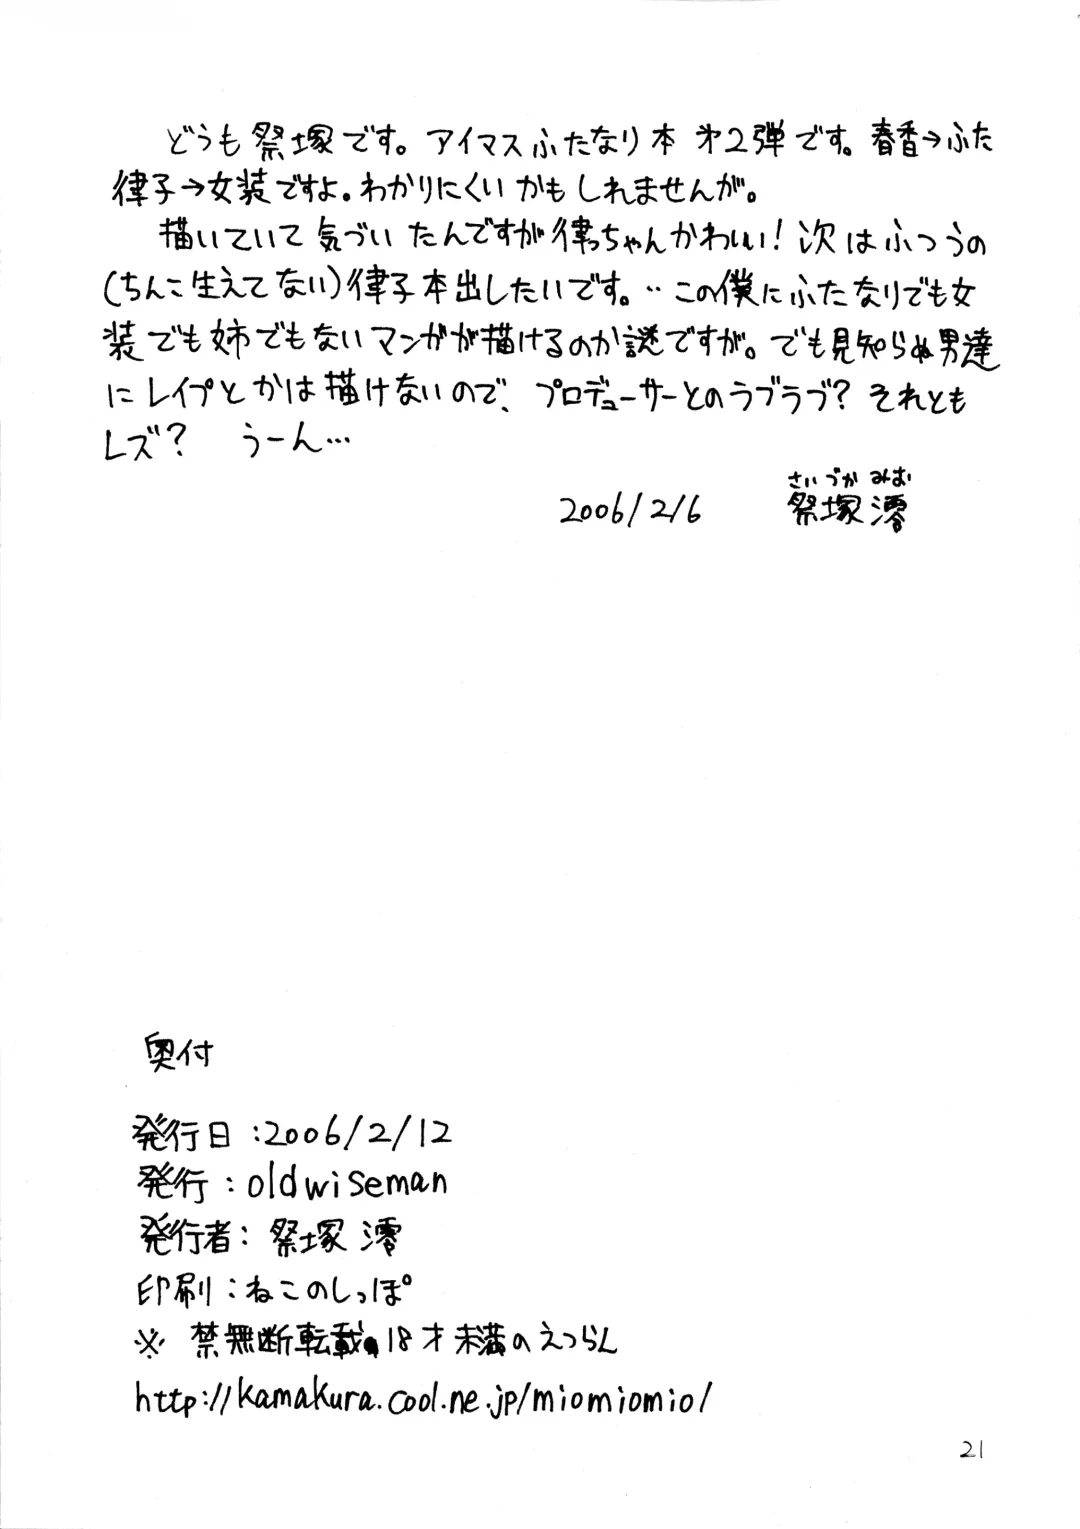 どうも祭塚です。アイマスふたなり本 オ2弾です。春香→ふた
律子→女装ですよ。わかりにくいかもしれませんが。
描いていて気づいたんですが律っちゃんかわいい！次はふつうの
(ちんこ生えてない)律子本出したいです。‥この僕にふたなりでも女
装でも姉でもないマンガが描けるのか謎ですが。でも見知らぬ男達
にレイプとかは描けないので、プロデューサーとのラブラブ？それとも
レズ？ うーん…
さいづかみお
2006/2/6 祭塚澪
奥付
発行日:2006/2/12
発行:oldwiseman
発行者:祭塚 澪
印刷:ねこのしっぽ
※ 禁無断転載、18才未満のえつらん
http://kamakura.cool.ne.jp/miomiomio/
21